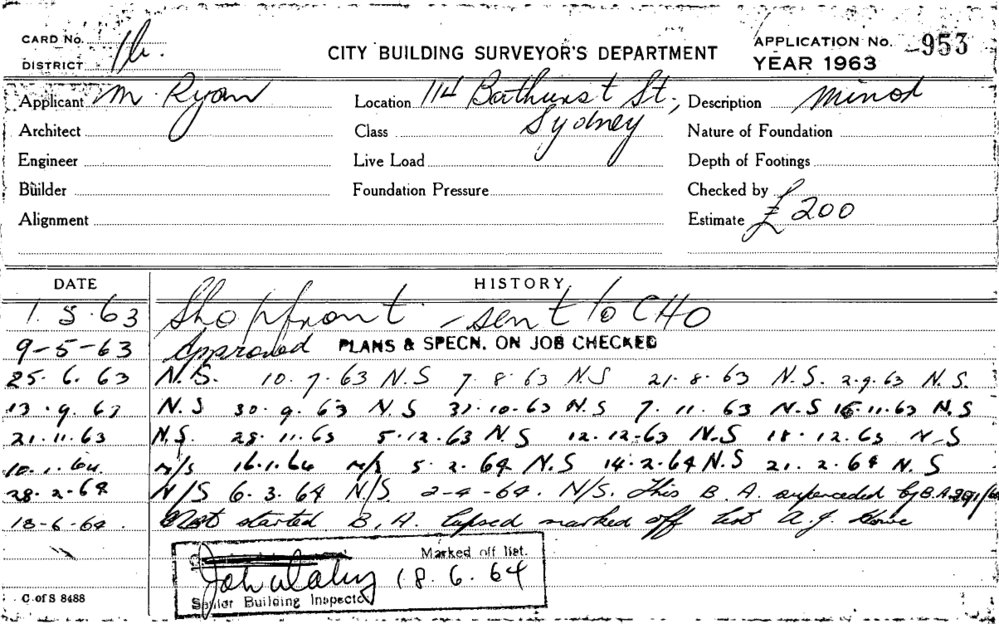 CARD No. 1b.
CITY BUILDING SURVEYOR'S DEPARTMENT
APPLICATION No. 953
DISTRICT
YEAR 1963
Applicant M. Ryan
Location 114 Bathurst St., Sydney
Description Minor
Architect
Class
Nature of Foundation
Engineer
Live Load
Depth of Footings
Builder
Foundation Pressure
Checked by
Alignment
Estimate £200
DATE HISTORY
1.5.63 Shopfront - sent to CHO
9-5-63 Approved PLANS & SPECN. ON JOB CHECKED
25.6.63 N.S. 10.7.63 N.S 7.8.63 N.S 21.8.63 N.S. 2.9.63 N.S.
13.9.63 N.S 30.9.63 N.S 31.10.63 N.S 7.11.63 N.S 15.11.63 N.S
21.11.63 N.S. 28.11.63 5.12.63 N.S 12.12.63 N.S 18.12.63 N.S
10.1.64 N/S 16.1.64 N/S 5.2.64 N.S 14.2.64 N.S 21.2.64 N.S
28.2.64 N/S 6.3.64 N/S 2-4-64. N/S. This B.A. superceded by B.A.
18-6-64. Not started B.A. lapsed marked off list A.J.
Marked off list.
18.6.64
Senior Building Inspector
C of S 8488